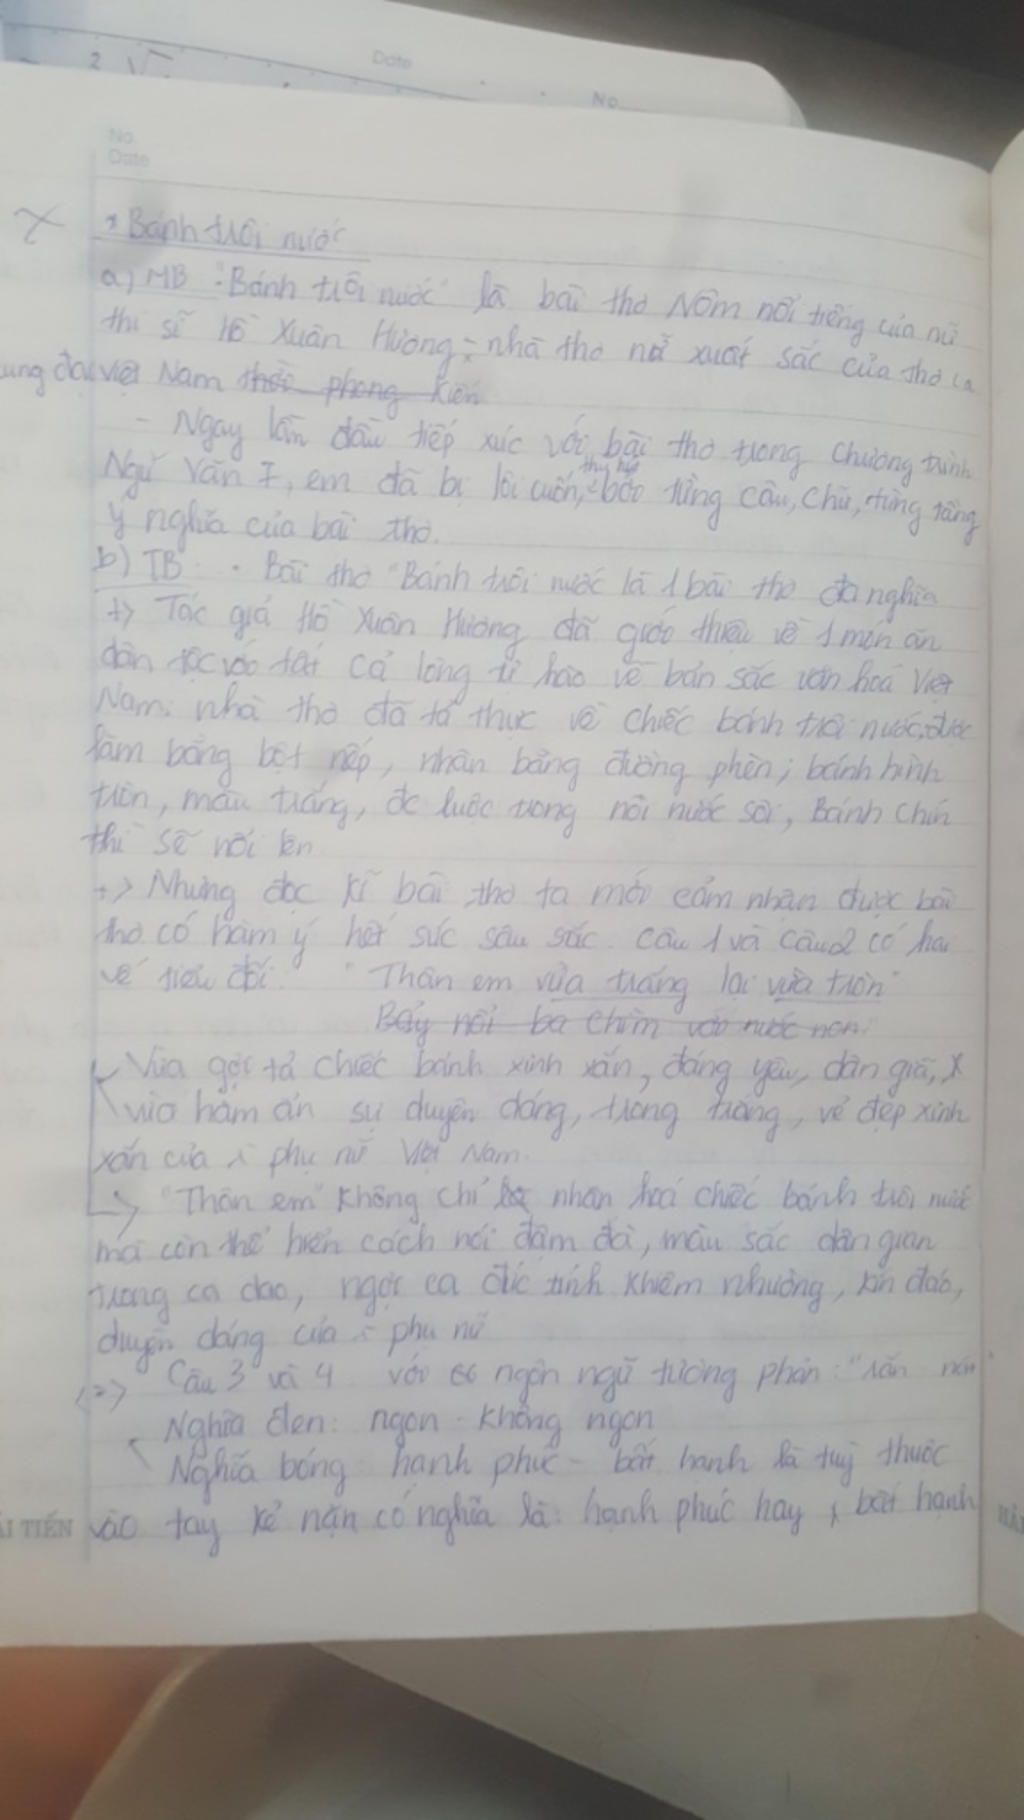 Date
No
2
No
Date
* Bánh trôi nước
a) MB : "Bánh trôi nước" là bài thơ Nôm nổi tiếng của nữ
thi sĩ Hồ Xuân Hương - nhà thơ nữ xuất sắc của thơ ca
ung đại việt Nam thời phong kiến
- Ngay lần đầu tiếp xúc với bài thơ trong chương trình
Ngữ Văn 7, em đã bị lôi cuốn, bởi từng câu, chữ, từng tầng
ý nghĩa của bài thơ.
b) TB . Bài thơ "Bánh trôi nước là 1 bài thơ đa nghĩa
+> Tác giả Hồ Xuân Hương đã giới thiệu về 1 món ăn
dân tộc với tất cả lòng tự hào về bản sắc văn hoá Việt
Nam. nhà thơ đã tả thực về chiếc bánh trôi nước, được
làm bằng bột nếp, nhân bằng đường phèn; bánh hình
tròn, màu trắng, đc luộc trong nồi nước sôi, Bánh chín
thì sẽ nổi lên
+> Nhưng đọc kĩ bài thơ ta mới cảm nhận được bài
thơ có hàm ý hết sức sâu sắc. Câu 1 và câu 2 có hai
vế tiểu đối: "Thân em vừa trắng lại vừa tròn"
Bảy nổi ba chìm với nước non.
Vừa gợi tả chiếc bánh xinh xắn, đáng yêu, dân giã,
vừa hàm ẩn sự duyên dáng, trong trắng, vẻ đẹp xinh
xắn của phụ nữ Việt Nam.
-> "Thân em" không chỉ là nhân hoá chiếc bánh trôi nước
mà còn thể hiện cách nói đậm đà, màu sắc dân gian
trong ca dao, ngợi ca đức tính khiêm nhường, kín đáo,
duyên dáng của phụ nữ
Câu 3 và 4 với ngôn ngữ tương phản: "rắn nát"
Nghĩa đen: ngon - không ngon
Nghĩa bóng hạnh phúc - bất hạnh là tuỳ thuộc
ẢI TIẾN vào tay kẻ nặn có nghĩa là: hạnh phúc hay bất hạnh
HẢ